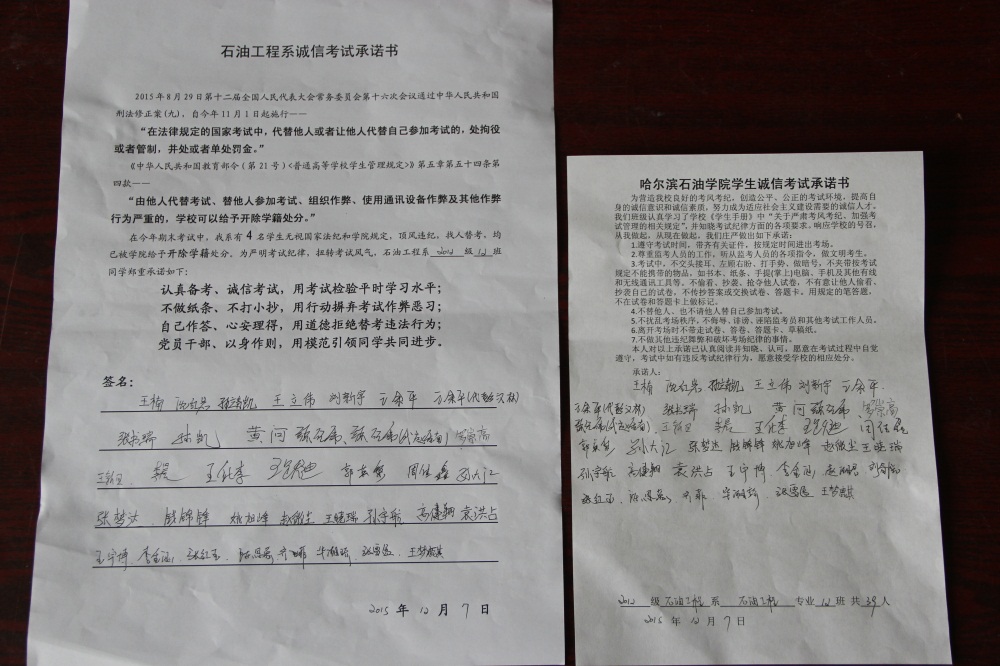 石油工程系诚信考试承诺书
2015年8月29日第十二届全国人民代表大会常务委员会第十六次会议通过中华人民共和国
刑法修正案(九),自今年11月1日起施行——
“在法律规定的国家考试中,代替他人或者让他人代替自己参加考试的,处拘役
或者管制,并处或者单处罚金。”
《中华人民共和国教育部令(第21号)<普通高等学校学生管理规定>》第五章第五十四条第
四款——
“由他人代替考试、替他人参加考试、组织作弊、使用通讯设备作弊及其他作弊
行为严重的,学校可以给予开除学籍处分。”
在今年期末考试中,我系有4名学生无视国家法纪和学院规定,顶风违纪,找人替考,均
已被学院给予开除学籍处分。为严明考试纪律,扭转考试风气,石油工程系 2012 级 12 班
同学郑重承诺如下:
认真备考、诚信考试,用考试检验平时学习水平;
不做纸条、不打小抄,用行动摒弃考试作弊恶习;
自己作答、心安理得,用道德拒绝替考违法行为;
党员干部、以身作则,用模范引领同学共同进步。
签名:
王楠 王立伟 刘新宇
孙凯 黄河
郭东黎 周佳鑫 孙大江
张梦达 赵继生 王晓瑞 孙宇航 高健翔 袁洪占
王宁博 李金涵
2015 年 12 月 7 日
哈尔滨石油学院学生诚信考试承诺书
为营造我校良好的考风考纪,创造公平、公正的考试环境,提高自
身的诚信意识和诚信素质,努力成为适应社会主义建设需要的诚信人才。
我们班级认真学习了学校《学生手册》中“关于严肃考风考纪,加强考
试管理的相关规定”,并知晓考试纪律方面的各项要求。响应学校的号召,
从我做起,从现在做起,我们庄严做出如下承诺:
1.遵守考试时间,带齐有关证件,按规定时间进出考场。
2.尊重监考人员的工作,听从监考人员的各项指令,做文明考生。
3.考试中,不交头接耳、左顾右盼、打手势、做暗号,不夹带按考试
规定不能携带的物品,如书本、纸条、手提(掌上)电脑、手机及其他有线
和无线通讯工具等。不偷看、抄袭、抢夺他人试卷,不有意让他人偷看、
抄袭自己的试卷,不传抄答案或交换试卷、答题卡。用规定的笔答题,
不在试卷和答题卡上做标记。
4.不替他人、也不请他人替自己参加考试。
5.不扰乱考场秩序,不侮辱、诽谤、诬陷监考员和其他考试工作人员。
6.离开考场时不带走试卷、答卷、答题卡、草稿纸。
7.不做其他违纪舞弊和破坏考场纪律的事情。
本人对以上承诺已认真阅读并知晓、认可,愿意在考试过程中自觉
遵守,考试中如有违反考试纪律行为,愿意接受学校的相应处分。
承诺人:
王楠 王立伟 刘新宇
孙凯 黄河
孙大江 张梦达 王晓瑞
孙宇航 高健翔 袁洪占 王宁博 李金涵
2012 级 石油工程 系 石油工程 专业 12 班 共 39 人
2015 年 12 月 7 日